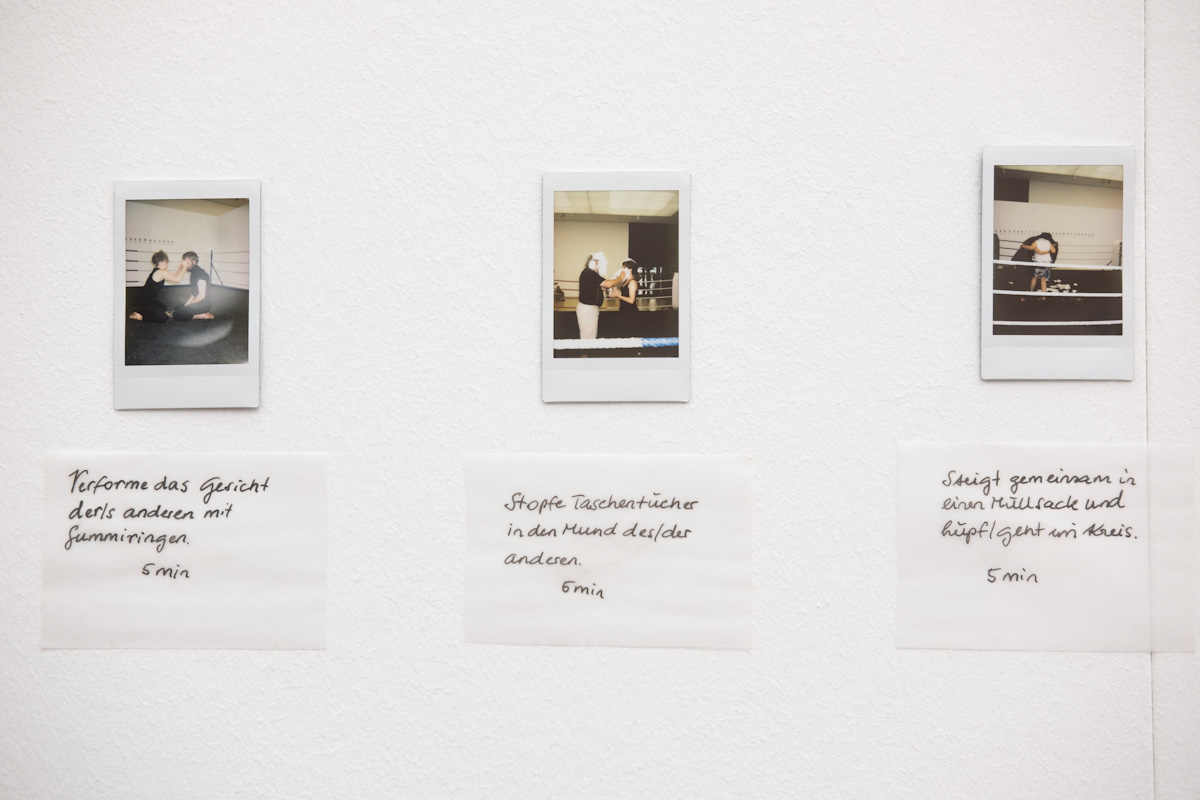 Verforme das Gesicht
der/s anderen mit
Gummiringen.
5 min
Stopfe Taschentücher
in den Mund des/der
anderen.
5 min
Steigt gemeinsam in
einen Müllsack und
hüpf/geht im Kreis.
5 min